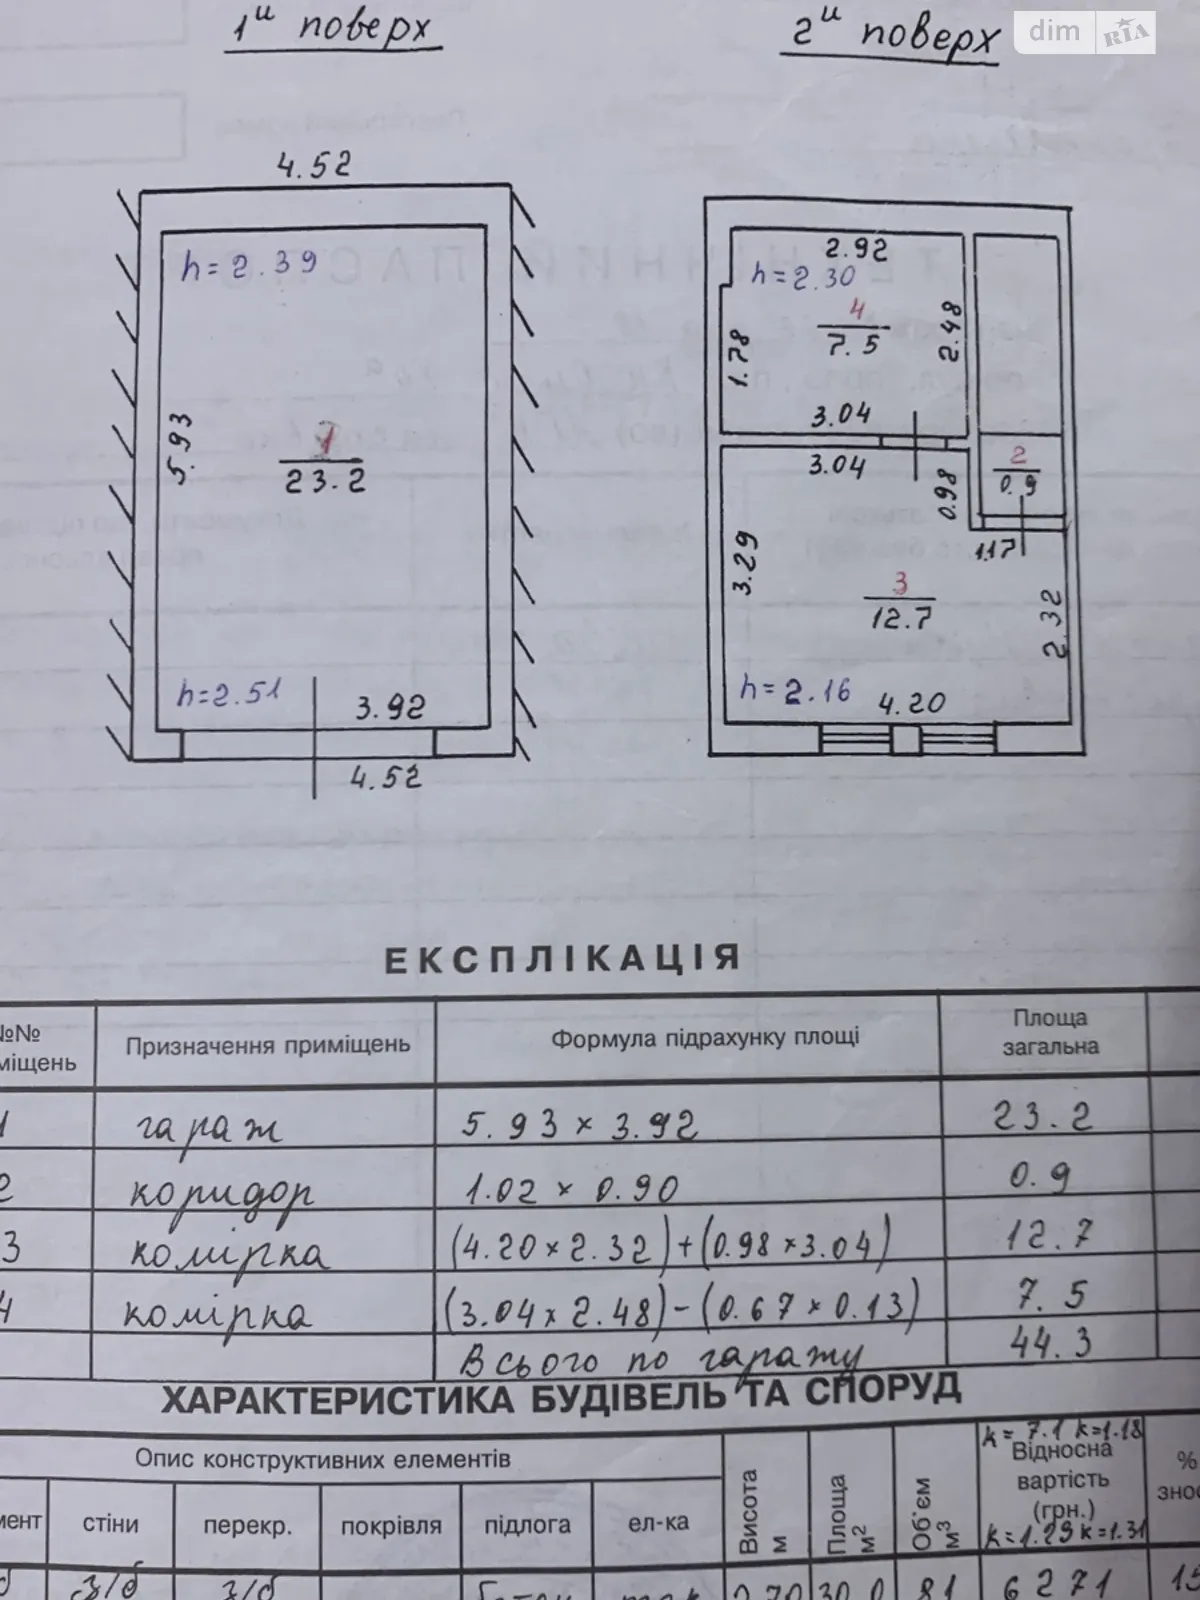 1й поверх
2й поверх
dim RIA
4.52
h=2.39
5.93
1
23.2
h=2.51
3.92
4.52
2.92
h=2.30
4
7.5
1.78
2.48
3.04
3.04
0.98
2
0.9
1.17
3.29
3
12.7
2.32
h=2.16
4.20
ЕКСПЛІКАЦІЯ
№№
Призначення приміщень
Формула підрахунку площі
Площа
загальна
1 гараж 5.93 × 3.92 23.2
2 коридор 1.02 × 0.90 0.9
3 комірка (4.20×2.32)+(0.98×3.04) 12.7
4 комірка (3.04×2.48)-(0.67×0.13) 7.5
Всього по гаражу 44.3
ХАРАКТЕРИСТИКА БУДІВЕЛЬ ТА СПОРУД
Опис конструктивних елементів
стіни
перекр.
покрівля
підлога
ел-ка
Висота
м
Площа
м²
Об'єм
м³
k=7.1 k=1.18
Відносна
вартість
(грн.)
k=1.29 k=1.31
%
з/б з/б 81 6271